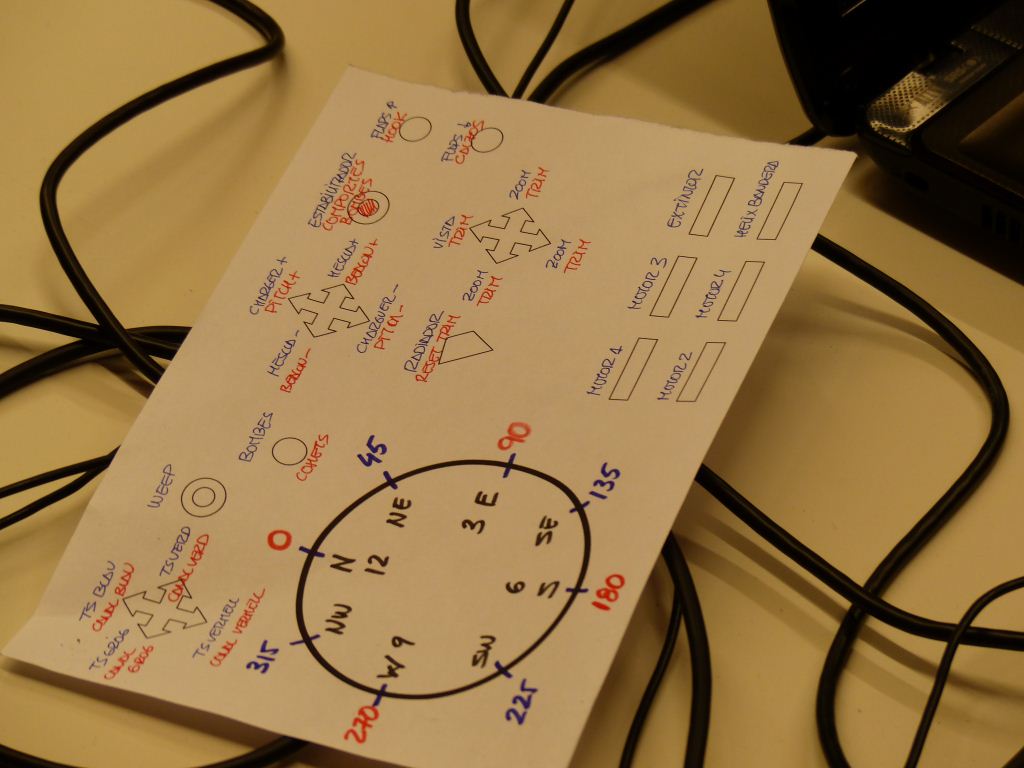 FLAPS ↑
HOOK
FLAPS ↓
COLZOS
ESTABILITZADOR
COMPORTES
BOMBES
CHARGER +
PITCH +
MESCLA +
BEACON +
MESCLA -
BEACON -
CHARGER -
PITCH -
VISTA
TRIM
ZOOM
TRIM
ZOOM
TRIM
ZOOM
TRIM
RADIADOR
RESET TRIM
EXTINTOR
HELIX BANDERA
MOTOR 3
MOTOR 4
MOTOR 1
MOTOR 2
BOMBES
COHETS
WEEP
TS BLAU
CANAL BLAU
TS VERD
CANAL VERD
TS GROG
CANAL
GROG
TS VERMELL
CANAL VERMELL
0
45
90
135
180
225
270
315
N
12
NE
E
3
SE
S
6
SW
W 9
NW